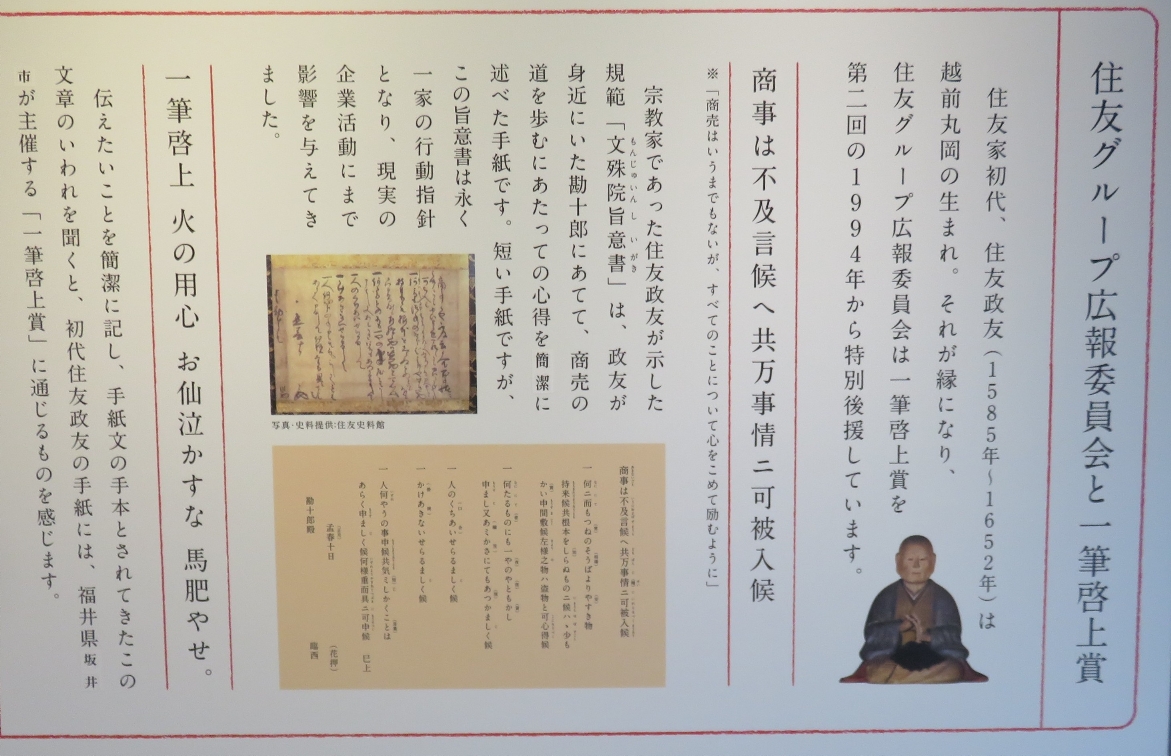 住友グループ広報委員会と一筆啓上賞
住友家初代、住友政友（1585年〜1652年）は
越前丸岡の生まれ。それが縁になり、
住友グループ広報委員会は一筆啓上賞を
第二回の1994年から特別後援しています。
商事は不及言候へ共万事情ニ可被入候
※「商売はいうまでもないが、すべてのことについて心をこめて励むように」
宗教家であった住友政友が示した
規範「文殊院旨意書」は、政友が
もんじゅいんしいがき
身近にいた勘十郎にあてて、商売の
道を歩むにあたっての心得を簡潔に
述べた手紙です。短い手紙ですが、
この旨意書は永く
一家の行動指針
となり、現実の
企業活動にまで
影響を与えてき
ました。
写真・史料提供:住友史料館
商事は不及言候へ共万事情ニ可被入候
一 何ニ而もつねのそうばよりやすき物
持来候共根本をしらぬものニ候ハヽ少も
かい申間敷候左様之物ハ盗物と可心得候
一 何たるものにも一やのやともかし
申まし又あミかさにてもあつかましく候
一 人のくちあいせらるましく候
一 かけあきないせらるましく候
一 人何やうの事申候共気ミしかくことは
あらく申ましく候何様重而具ニ可申候
已上
孟春十日
（花押）
勘十郎殿
臨西
一筆啓上 火の用心 お仙泣かすな 馬肥やせ。
伝えたいことを簡潔に記し、手紙文の手本とされてきたこの
文章のいわれを聞くと、初代住友政友の手紙には、福井県坂井
市が主催する「一筆啓上賞」に通じるものを感じます。